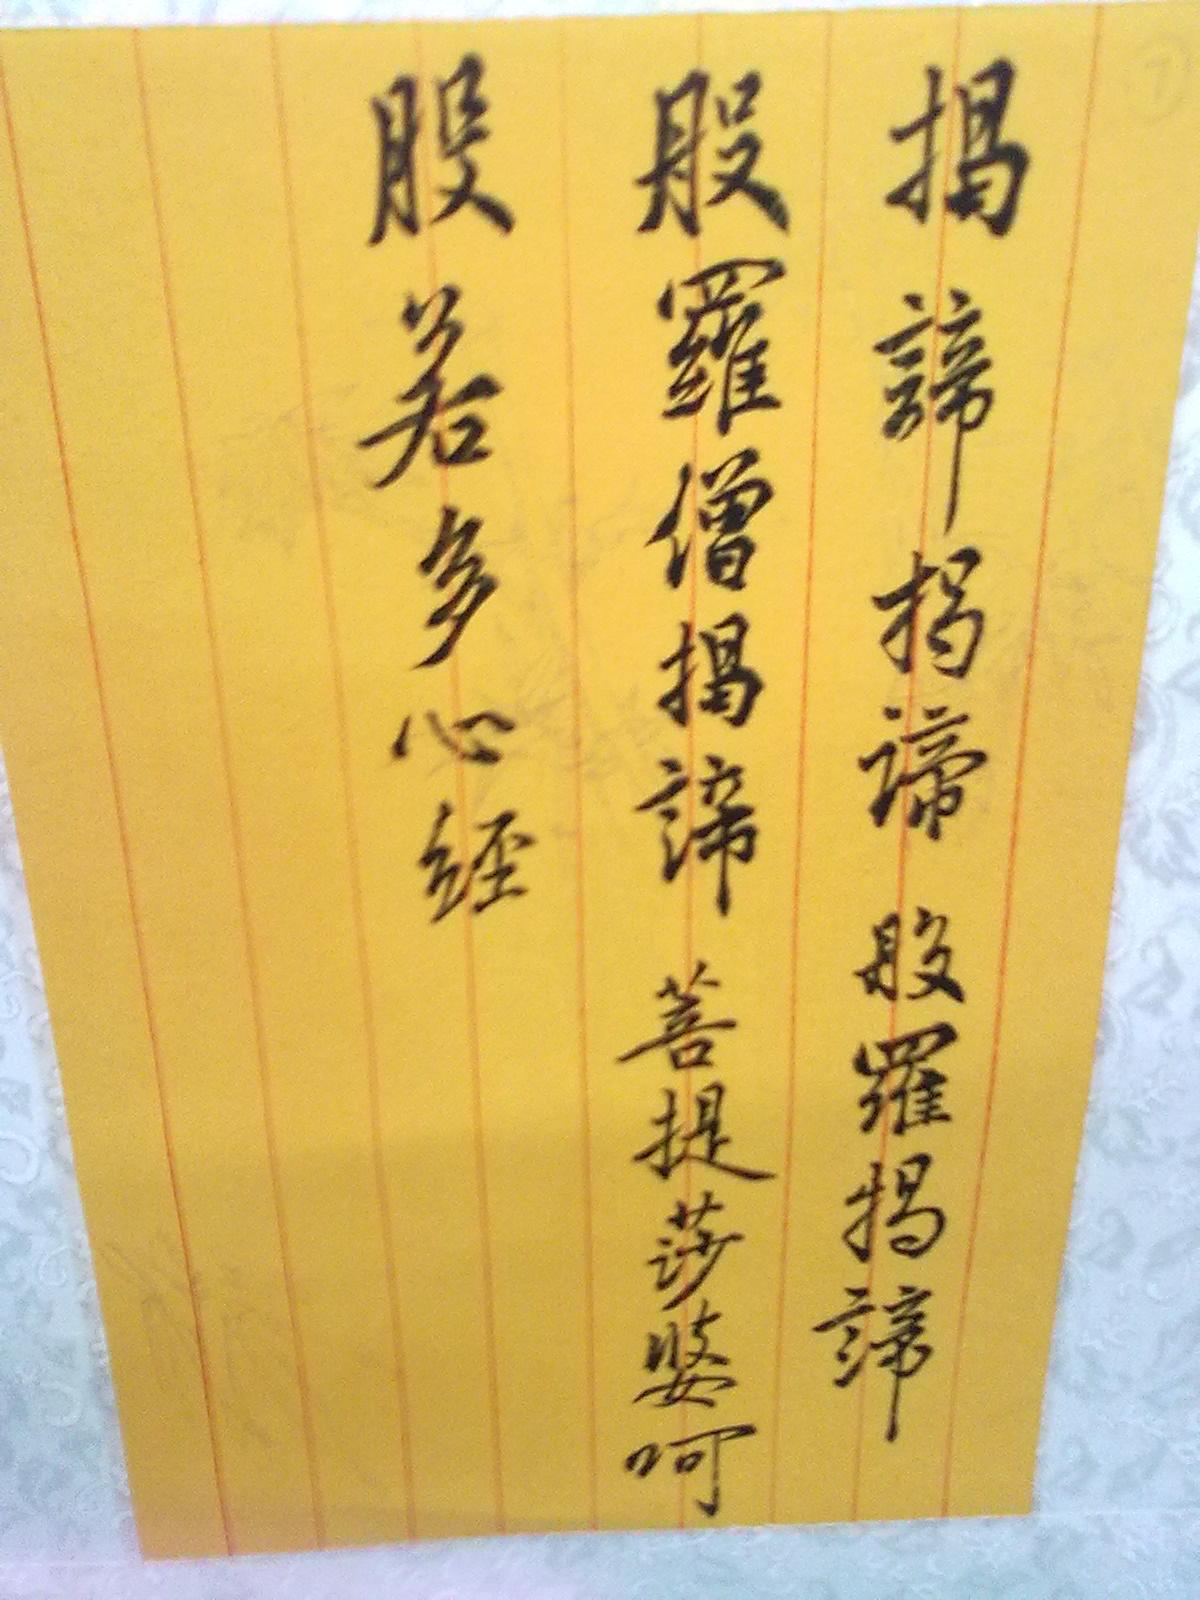 揭諦揭諦 般羅揭諦
般羅僧揭諦 菩提莎婆呵
般若多心経